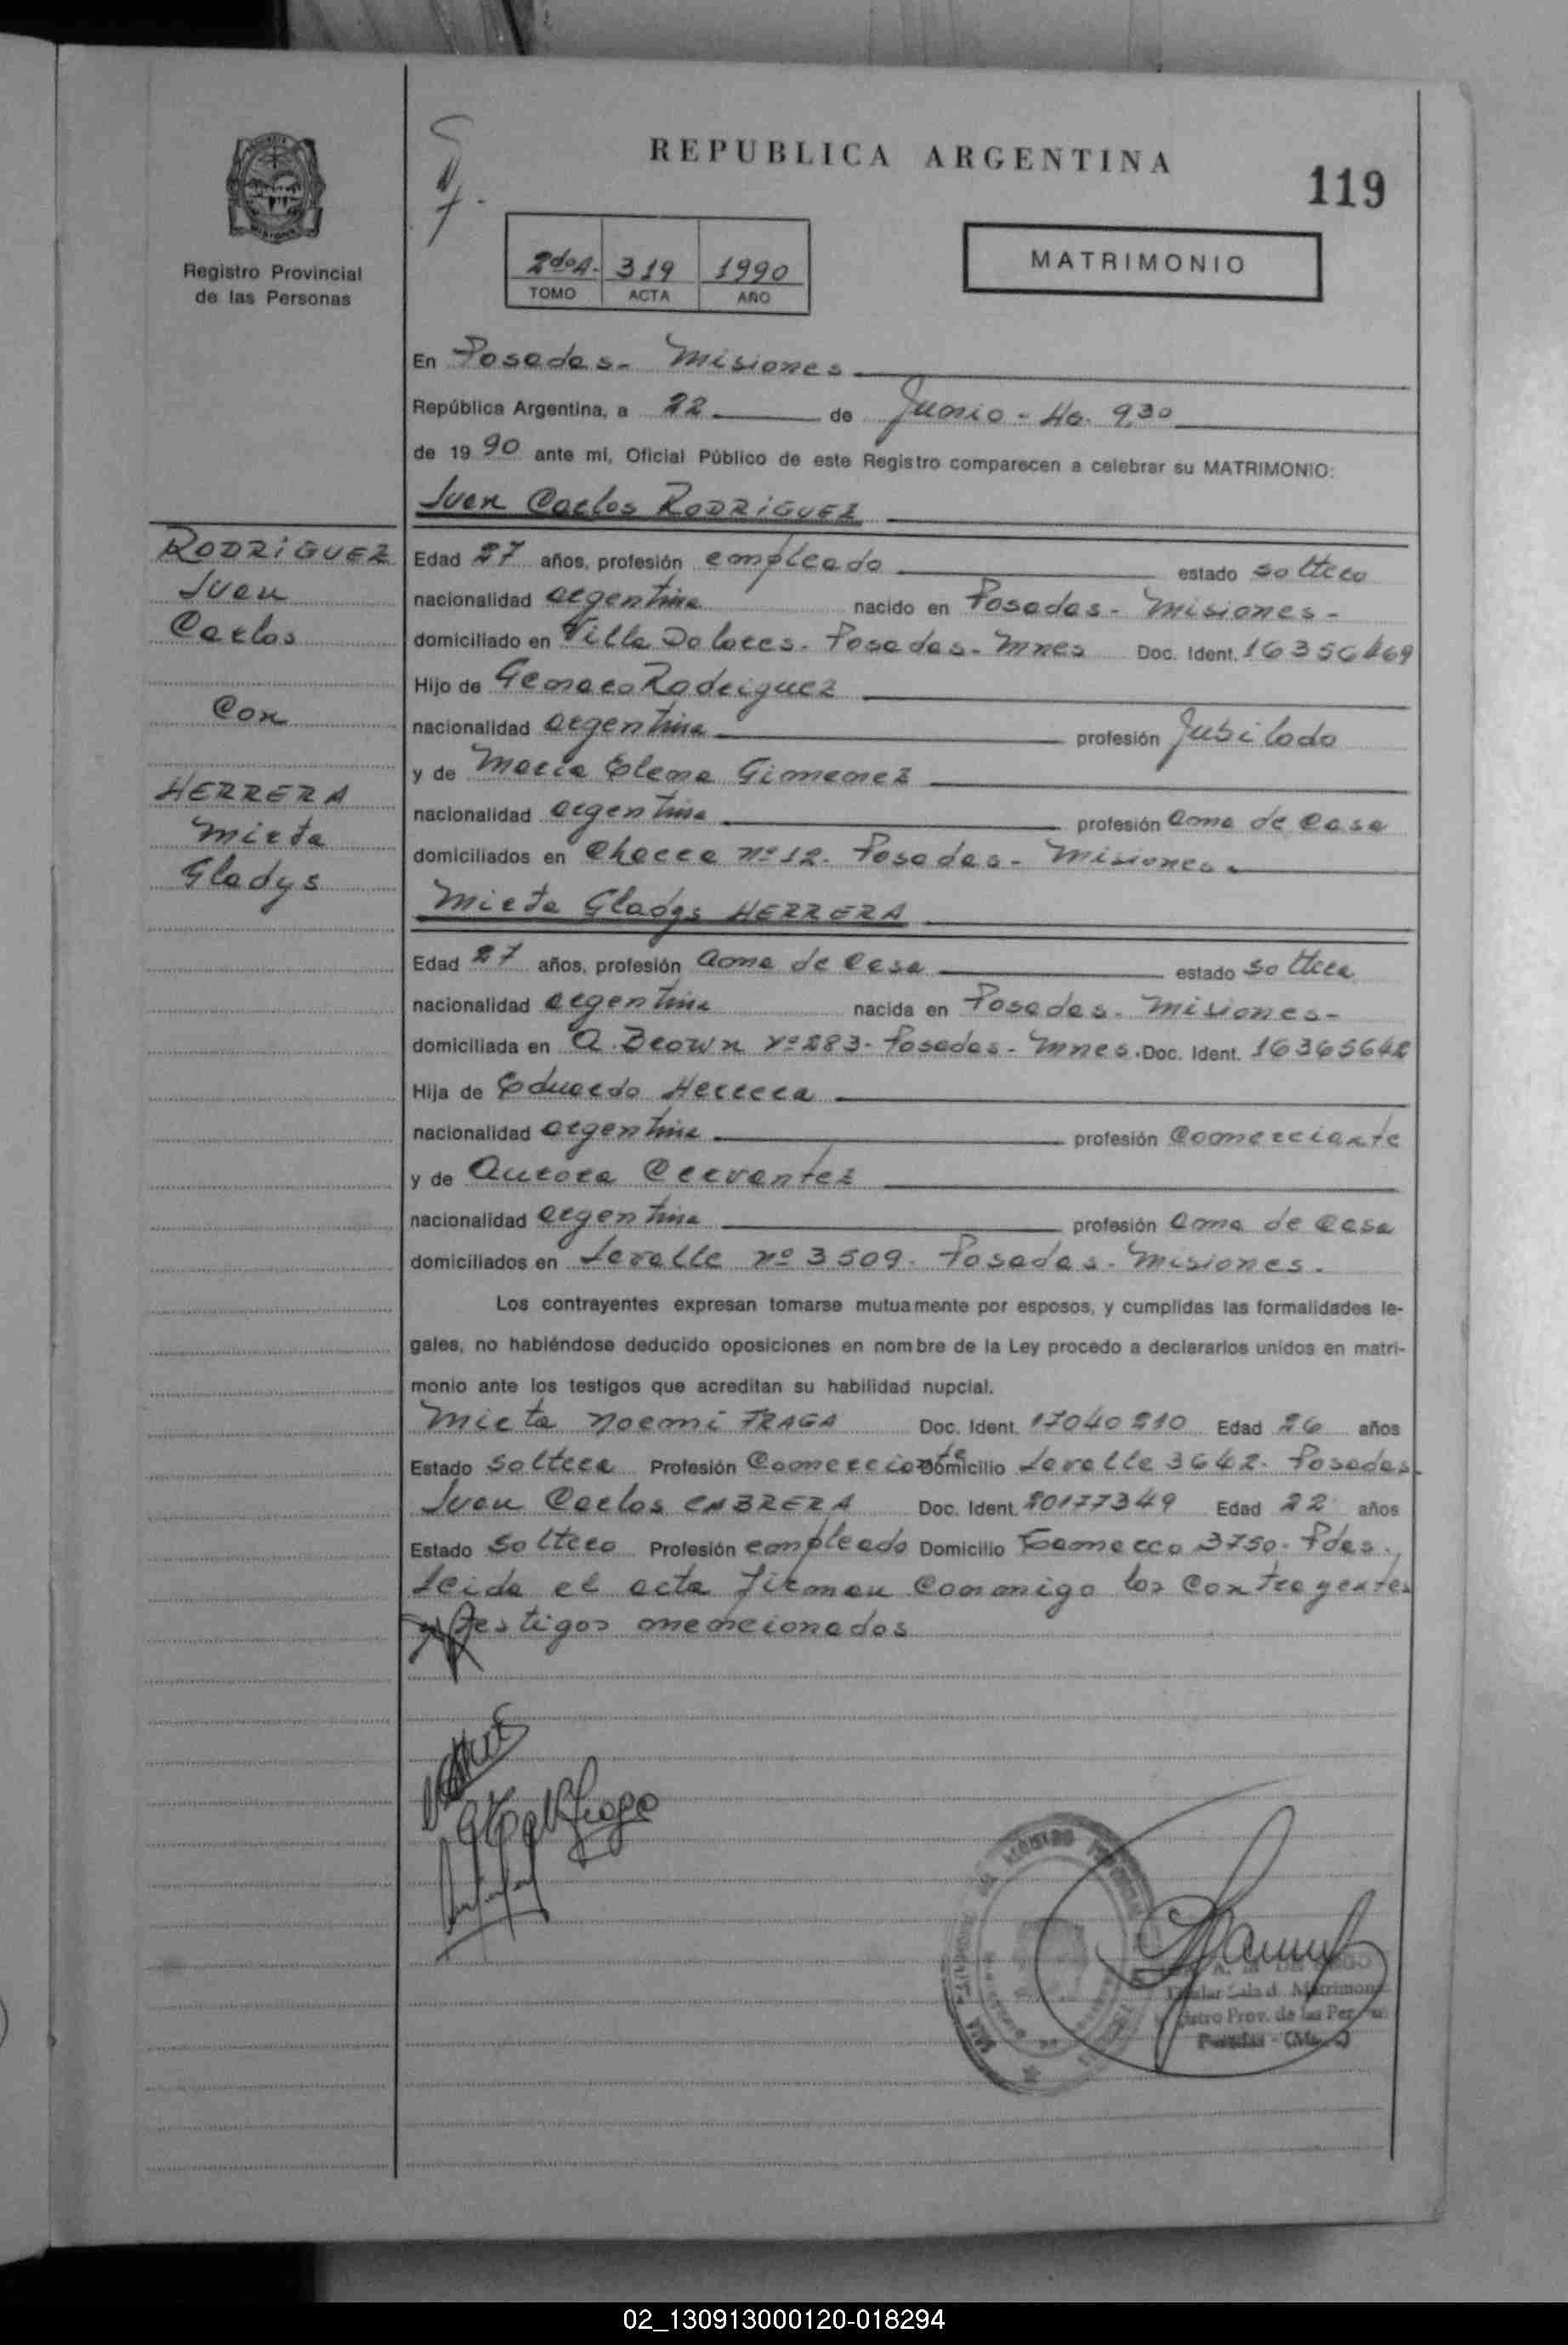 REPUBLICA ARGENTINA
119
Registro Provincial
de las Personas
2do A. 319 1990
TOMO ACTA AÑO
MATRIMONIO
En Posadas - Misiones
República Argentina, a 22 de Junio - Ho. 9,30
de 1990 ante mí, Oficial Público de este Registro comparecen a celebrar su MATRIMONIO:
Juan Carlos RODRIGUEZ
RODRIGUEZ
Juan
Carlos
Con
HERRERA
Mirta
Gladys
Edad 27 años, profesión empleado estado soltero
nacionalidad argentina nacido en Posadas - Misiones -
domiciliado en Villa Dolores - Posadas - Mnes Doc. Ident. 16356469
Hijo de Genaro Rodriguez
nacionalidad argentina profesión Jubilado
y de Maria Elena Gimenez
nacionalidad argentina profesión ama de casa
domiciliados en Chacra nº 12 - Posadas - Misiones
Mirta Gladys HERRERA
Edad 27 años, profesión ama de casa estado soltera
nacionalidad argentina nacida en Posadas - Misiones -
domiciliada en A. Brown nº 283 - Posadas - Mnes. Doc. Ident. 16365642
Hija de Eduardo Herrera
nacionalidad argentina profesión comerciante
y de Aurora Cervantez
nacionalidad argentina profesión ama de casa
domiciliados en Lavalle nº 3509 - Posadas - Misiones.
Los contrayentes expresan tomarse mutuamente por esposos, y cumplidas las formalidades le-
gales, no habiéndose deducido oposiciones en nombre de la Ley procedo a declararlos unidos en matri-
monio ante los testigos que acreditan su habilidad nupcial.
Mirta Noemi FRAGA Doc. Ident. 17040210 Edad 26 años
Estado soltera Profesión Comerciante Domicilio Lavalle 3642 - Posadas
Juan Carlos CABRERA Doc. Ident. 20177349 Edad 22 años
Estado soltero Profesión empleado Domicilio 3750 - Pdas.
Leida el acta firman conmigo los contrayentes
y testigos mencionados
Matrimon
Prov. de las Per
02_130913000120-018294